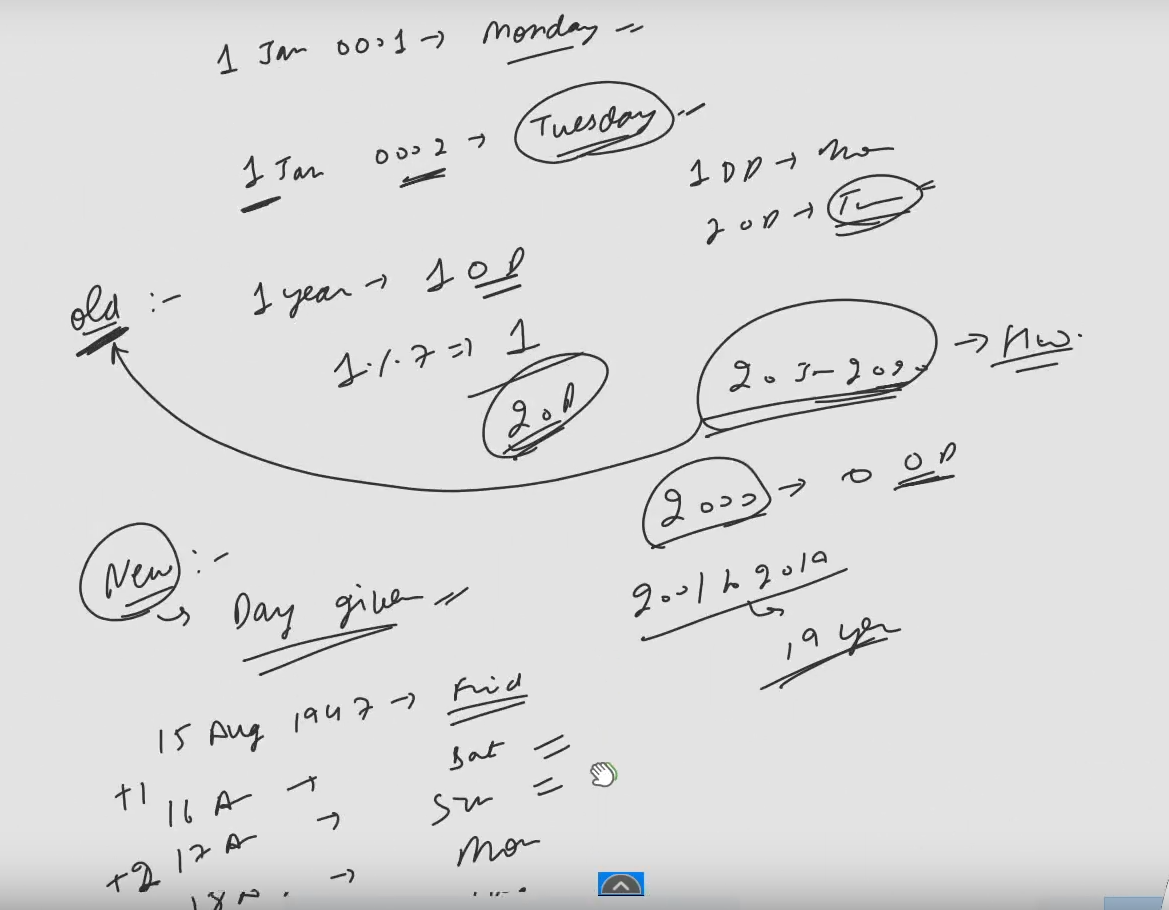 1 Jan 0001 → Monday
1 Jan 0002 → Tuesday
1 OD → Mo
2 OD → Tu
old :- 1 year → 1 OD
1 % 7 => 1
2 OD
20 Jan 2020 → HW.
2000 → 0 OD
2001 to 2019
19 year
New :-
Day given
15 Aug 1947 → Frid
+1 16 A → Sat
+2 17 A → Sun
18 A → Mon